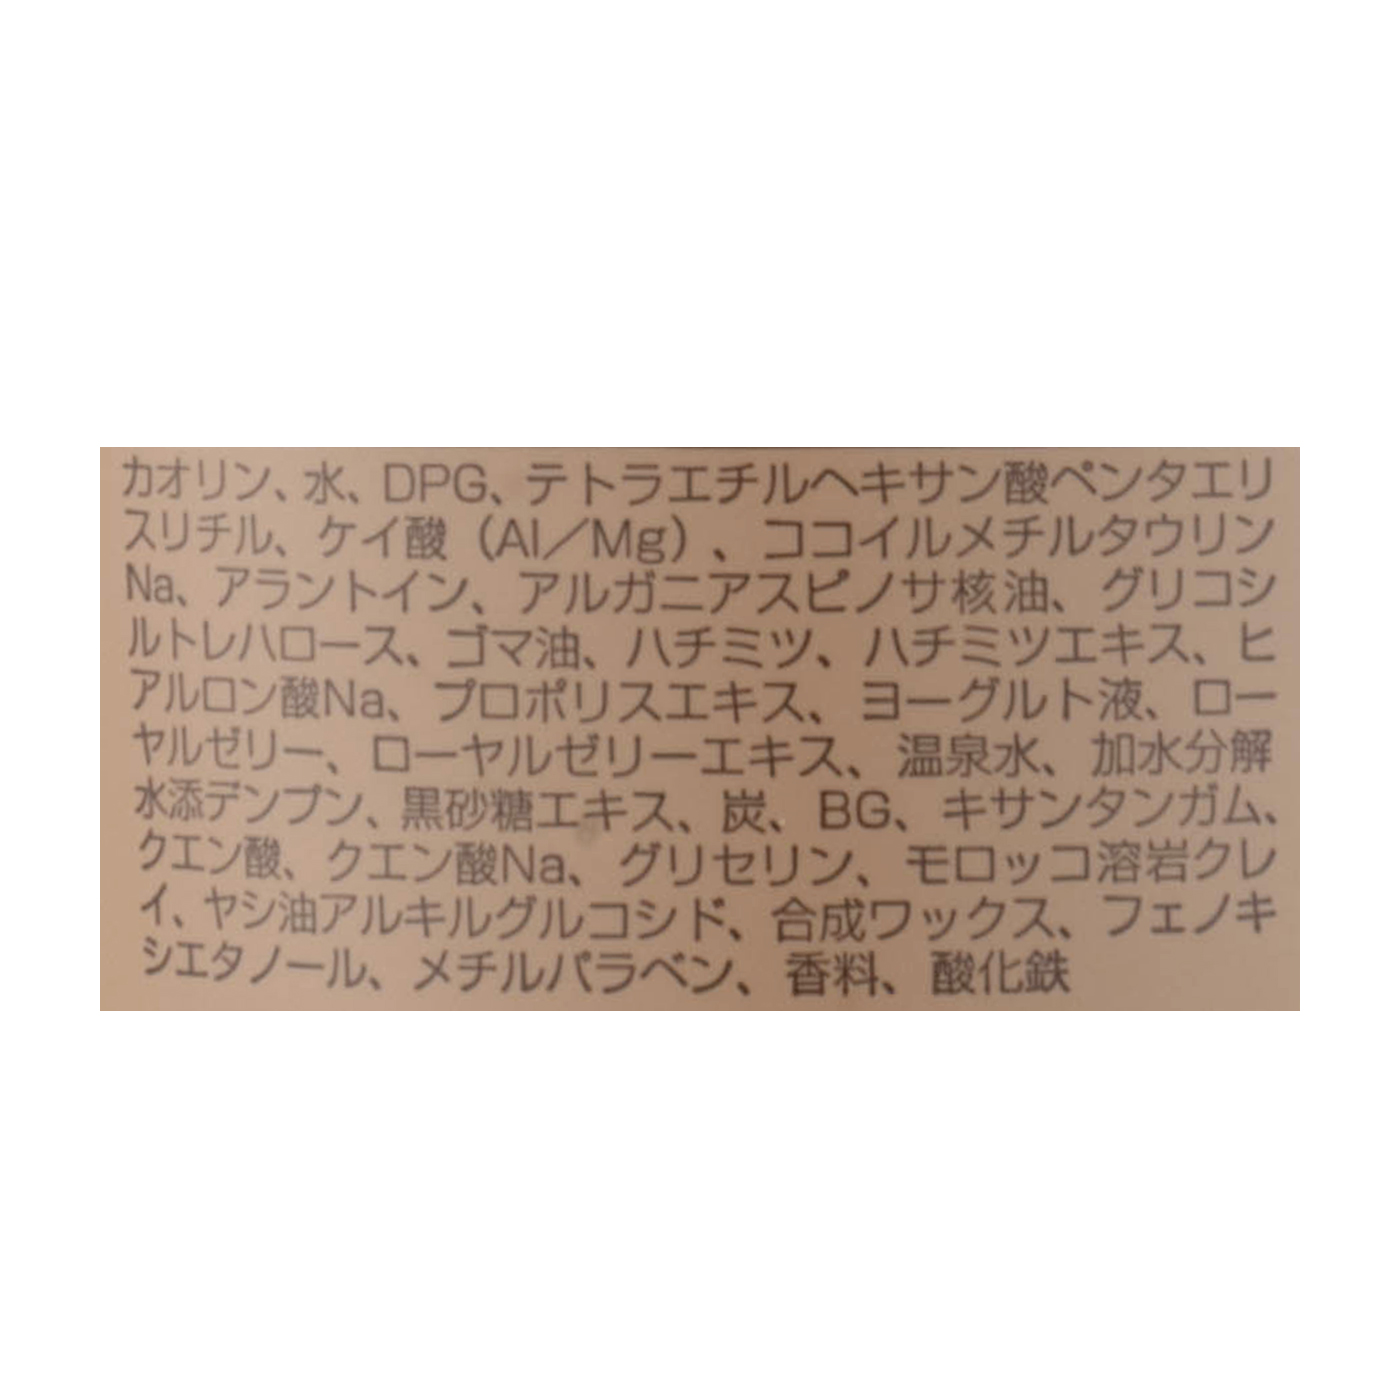 カオリン、水、DPG、テトラエチルヘキサン酸ペンタエリ
スリチル、ケイ酸（Al／Mg）、ココイルメチルタウリン
Na、アラントイン、アルガニアスピノサ核油、グリコシ
ルトレハロース、ゴマ油、ハチミツ、ハチミツエキス、ヒ
アルロン酸Na、プロポリスエキス、ヨーグルト液、ロー
ヤルゼリー、ローヤルゼリーエキス、温泉水、加水分解
水添デンプン、黒砂糖エキス、炭、BG、キサンタンガム、
クエン酸、クエン酸Na、グリセリン、モロッコ溶岩クレ
イ、ヤシ油アルキルグルコシド、合成ワックス、フェノキ
シエタノール、メチルパラベン、香料、酸化鉄